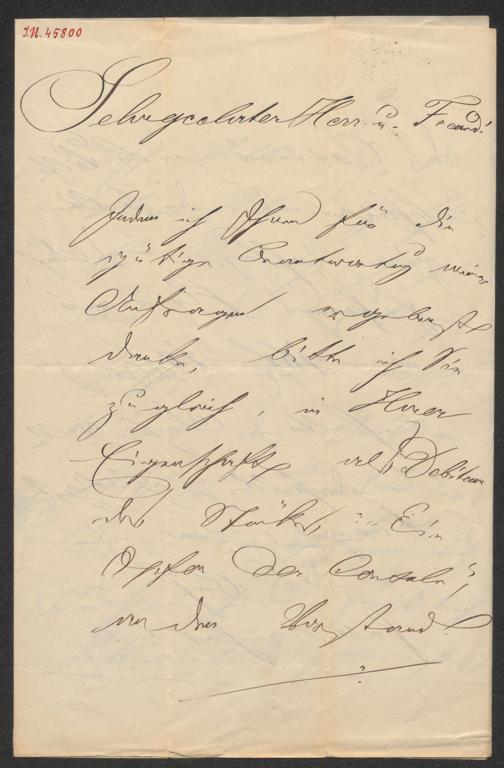 I.N. 45800
Sehrgeehrter Herr u. Freund!
Indem ich Ihnen für die
gütige Beantwortung meiner
Anfragen ergebenst
danke, bitte ich Sie
zugleich, in Ihrer
Eigenschaft als
des Stückes, „Ein
Opfer der Consuln",
an den Vorstand